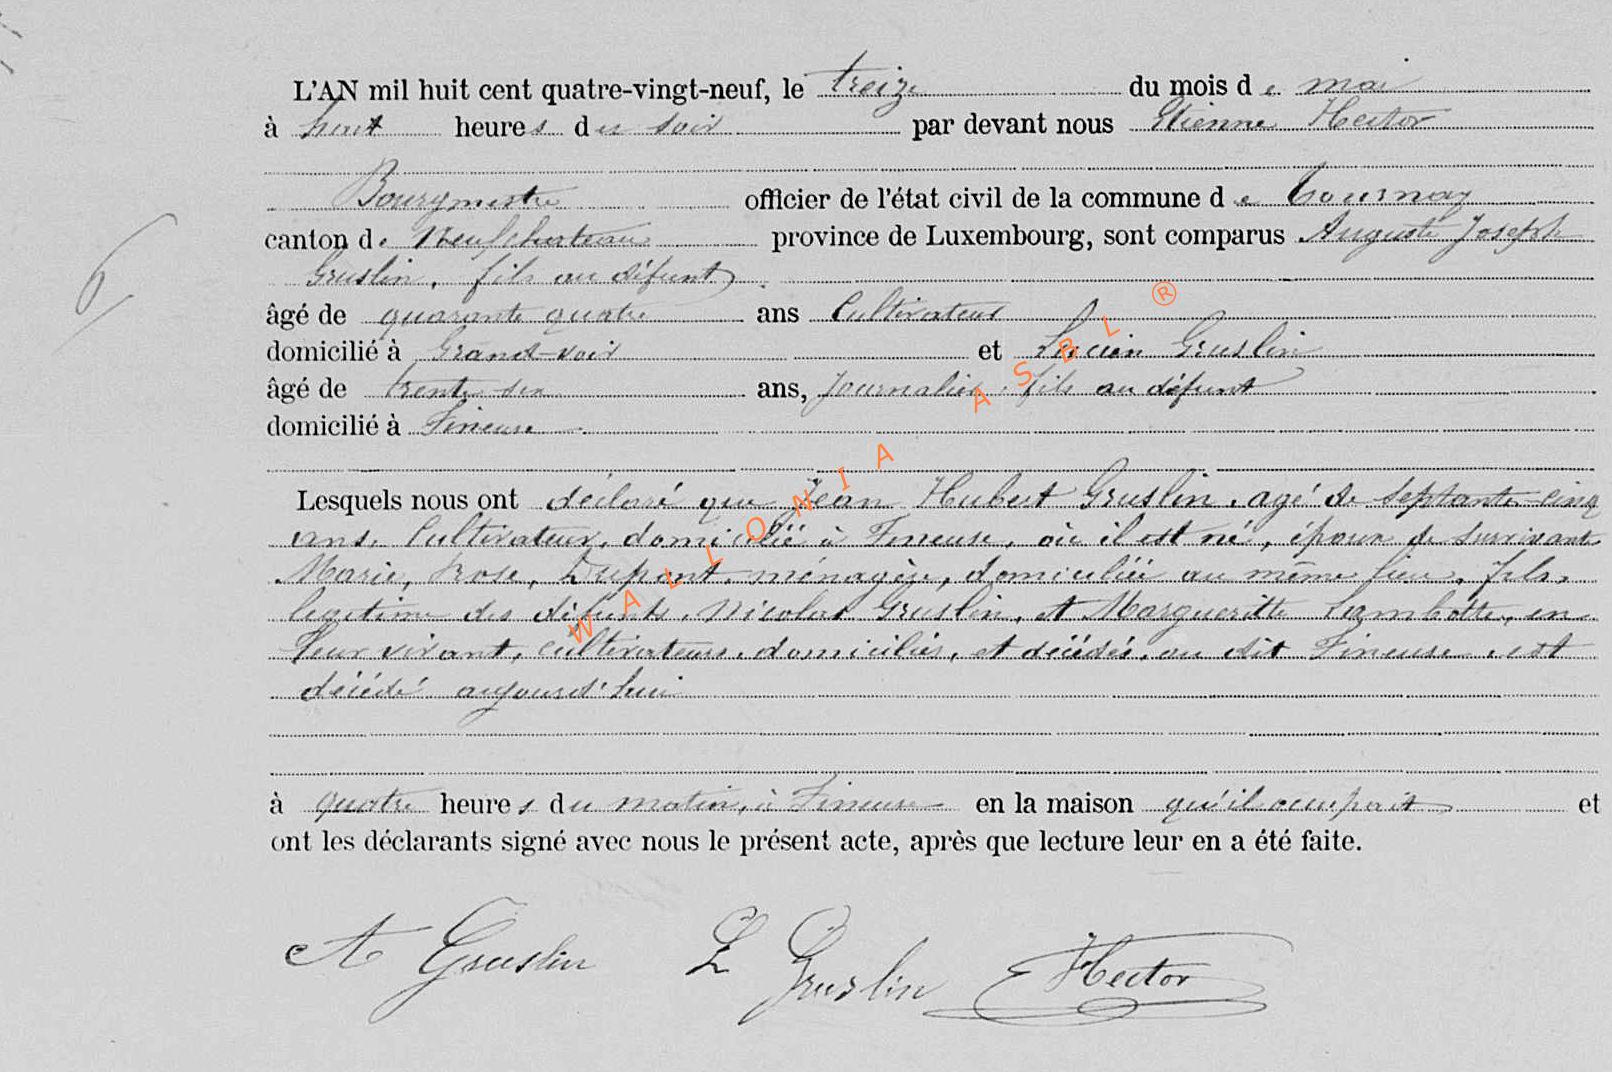 L'AN mil huit cent quatre-vingt-neuf, le treize du mois de mai
à huit heures du soir par devant nous Etienne Hector
Bourgmestre officier de l'état civil de la commune de Tournay
canton de Neufchateau province de Luxembourg, sont comparus Auguste Joseph
Gruslin, fils au défunt
âgé de quarante quatre ans Cultivateur
domicilié à Grand-voir et Lucien Gruslin
âgé de trente six ans, Journalier, fils au défunt
domicilié à Fineuse
Lesquels nous ont déclaré que Jean Hubert Gruslin, agé de septante cinq
ans, Cultivateur, domicilié à Fineuse, où il est né, époux de survivante
Marie, Rose, Dupont, ménagère, domiciliée au même lieu, fils,
legitime des défunts, Nicolas Gruslin, et Margueritte Lambotte, en
leur vivant, cultivateurs, domiciliés, et décédés, au dit Fineuse, est
décédé aujourd'hui
à quatre heures du matin, à Fineuse en la maison qu'il occupait et
ont les déclarants signé avec nous le présent acte, après que lecture leur en a été faite.
A Gruslin L Gruslin Hector
6
WALLONIA ASBL ®